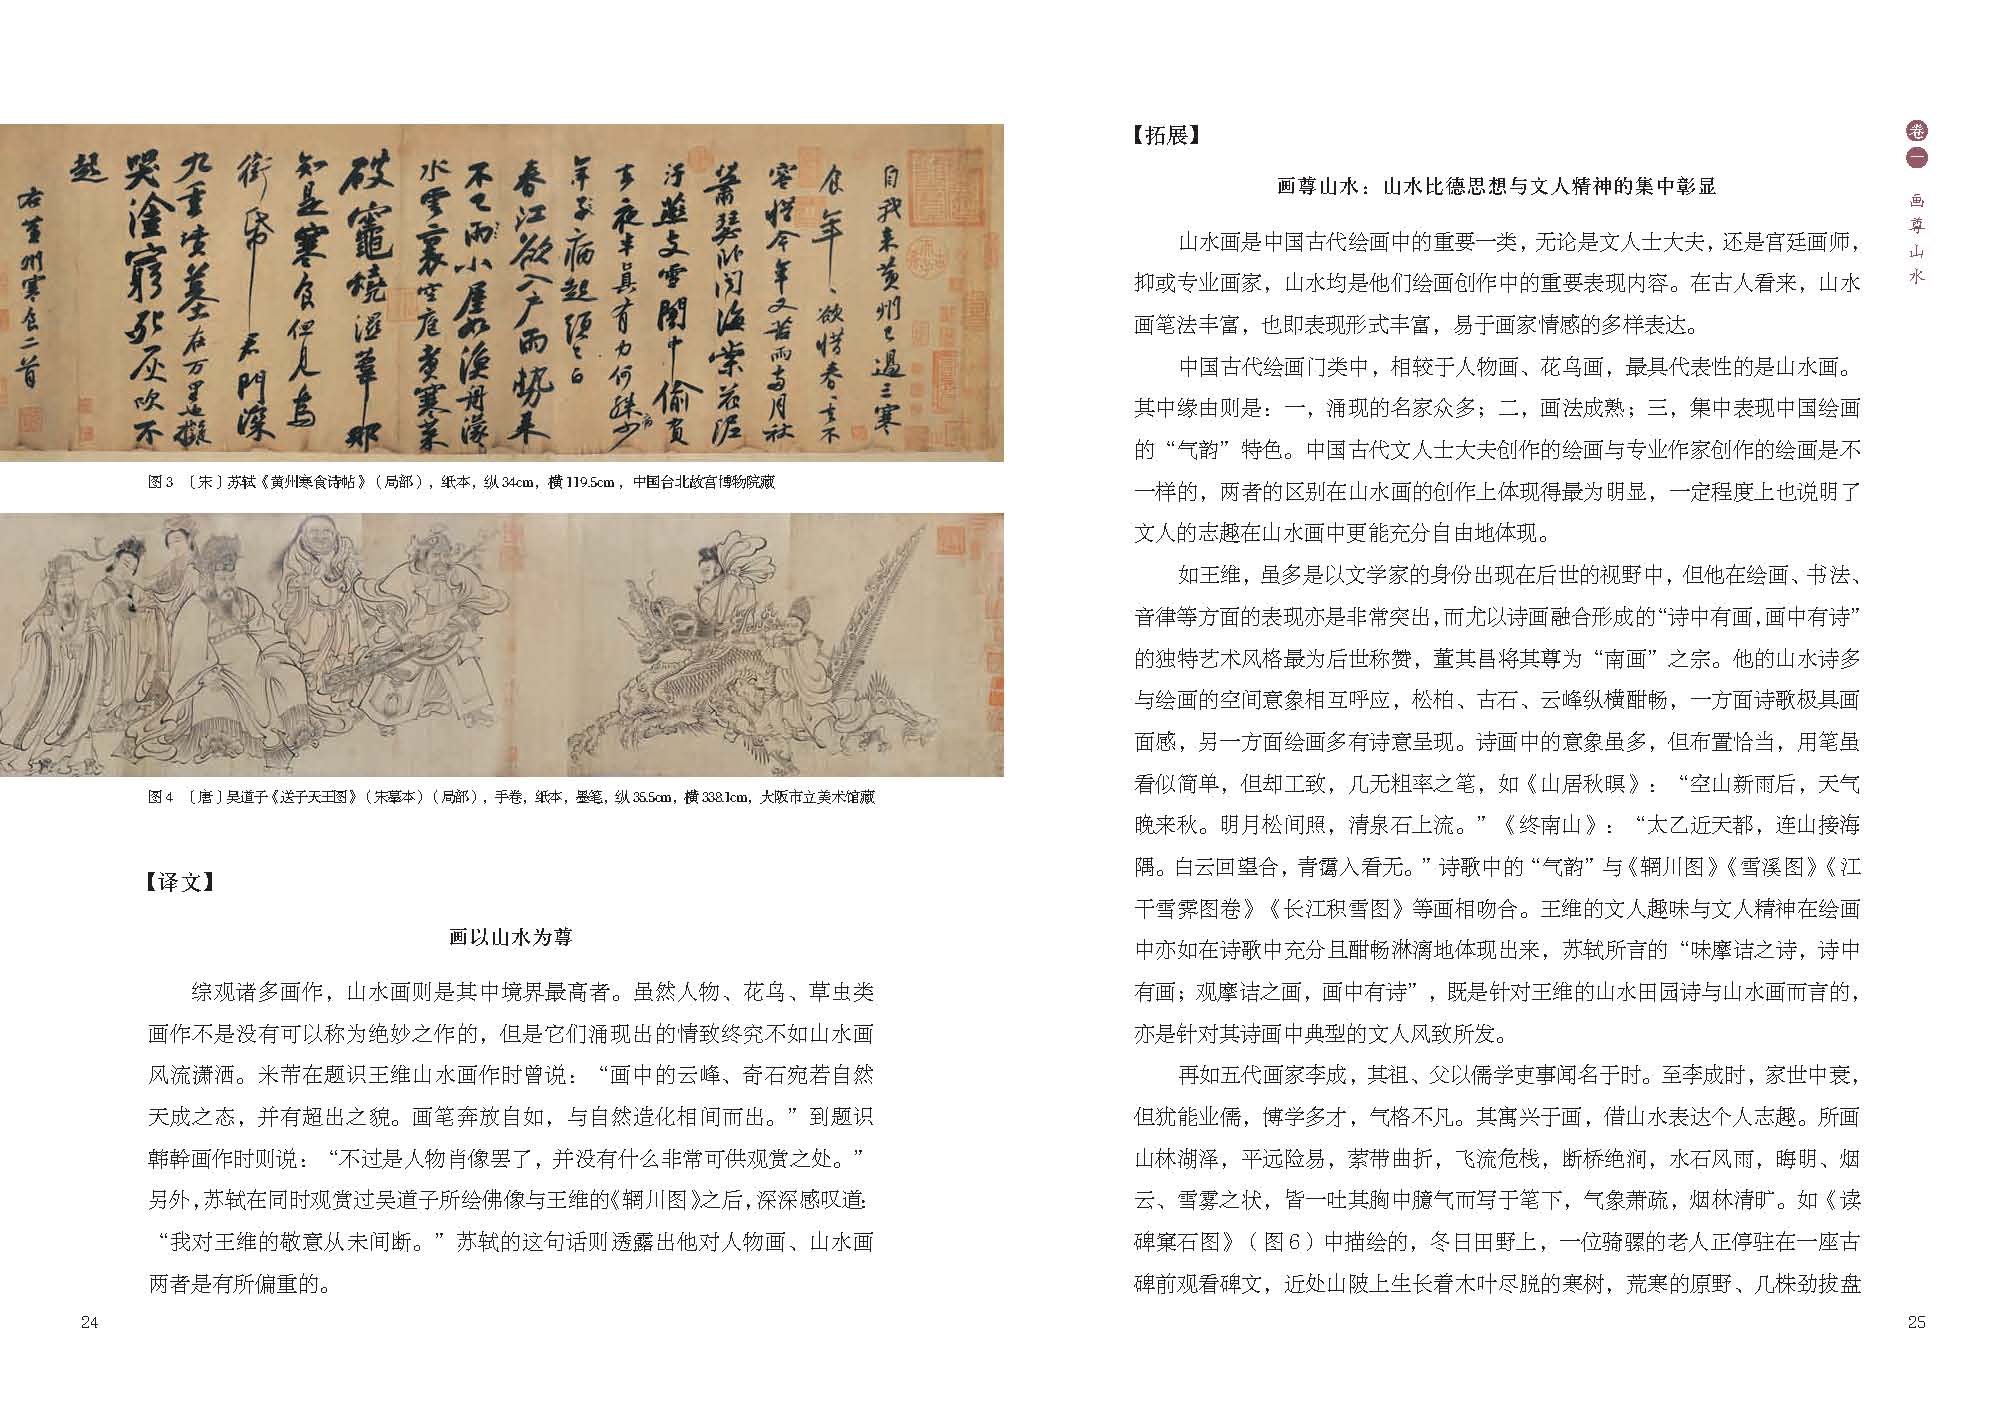 自我来黄州已過三寒
食年〻欲惜春〻去不
容惜今年又苦雨兩月秋
蕭瑟卧闻海棠花泥
汙燕支雪闇中偷負
去夜半真有力何殊少
年子病起頭已白
春江欲入户雨勢来
不已雨小屋如漁舟濛〻
水雲裏空庖煮寒菜
破竈燒濕葦那
知是寒食但見烏
銜帋君門深
九重墳墓在万里也擬
哭塗窮死灰吹不
起
右黄州寒食二首
图3 〔宋〕苏轼《黄州寒食诗帖》（局部），纸本，纵34cm，横119.5cm，中国台北故宫博物院藏
图4 〔唐〕吴道子《送子天王图》（宋摹本）（局部），手卷，纸本，墨笔，纵35.5cm，横338.1cm，大阪市立美术馆藏
【译文】
画以山水为尊
综观诸多画作，山水画则是其中境界最高者。虽然人物、花鸟、草虫类
画作不是没有可以称为绝妙之作的，但是它们涌现出的情致终究不如山水画
风流潇洒。米芾在题识王维山水画作时曾说：“画中的云峰、奇石宛若自然
天成之态，并有超出之貌。画笔奔放自如，与自然造化相间而出。”到题识
韩幹画作时则说：“不过是人物肖像罢了，并没有什么非常可供观赏之处。”
另外，苏轼在同时观赏过吴道子所绘佛像与王维的《辋川图》之后，深深感叹道：
“我对王维的敬意从未间断。”苏轼的这句话则透露出他对人物画、山水画
两者是有所偏重的。
24
【拓展】
画尊山水：山水比德思想与文人精神的集中彰显
山水画是中国古代绘画中的重要一类，无论是文人士大夫，还是宫廷画师，
抑或专业画家，山水均是他们绘画创作中的重要表现内容。在古人看来，山水
画笔法丰富，也即表现形式丰富，易于画家情感的多样表达。
中国古代绘画门类中，相较于人物画、花鸟画，最具代表性的是山水画。
其中缘由则是：一，涌现的名家众多；二，画法成熟；三，集中表现中国绘画
的“气韵”特色。中国古代文人士大夫创作的绘画与专业作家创作的绘画是不
一样的，两者的区别在山水画的创作上体现得最为明显，一定程度上也说明了
文人的志趣在山水画中更能充分自由地体现。
如王维，虽多是以文学家的身份出现在后世的视野中，但他在绘画、书法、
音律等方面的表现亦是非常突出，而尤以诗画融合形成的“诗中有画，画中有诗”
的独特艺术风格最为后世称赞，董其昌将其尊为“南画”之宗。他的山水诗多
与绘画的空间意象相互呼应，松柏、古石、云峰纵横酣畅，一方面诗歌极具画
面感，另一方面绘画多有诗意呈现。诗画中的意象虽多，但布置恰当，用笔虽
看似简单，但却工致，几无粗率之笔，如《山居秋暝》：“空山新雨后，天气
晚来秋。明月松间照，清泉石上流。”《终南山》：“太乙近天都，连山接海
隅。白云回望合，青霭入看无。”诗歌中的“气韵”与《辋川图》《雪溪图》《江
干雪霁图卷》《长江积雪图》等画相吻合。王维的文人趣味与文人精神在绘画
中亦如在诗歌中充分且酣畅淋漓地体现出来，苏轼所言的“味摩诘之诗，诗中
有画；观摩诘之画，画中有诗”，既是针对王维的山水田园诗与山水画而言的，
亦是针对其诗画中典型的文人风致所发。
再如五代画家李成，其祖、父以儒学吏事闻名于时。至李成时，家世中衰，
但犹能业儒，博学多才，气格不凡。其寓兴于画，借山水表达个人志趣。所画
山林湖泽，平远险易，萦带曲折，飞流危栈，断桥绝涧，水石风雨，晦明、烟
云、雪雾之状，皆一吐其胸中臆气而写于笔下，气象萧疏，烟林清旷。如《读
碑窠石图》（图6）中描绘的，冬日田野上，一位骑骡的老人正停驻在一座古
碑前观看碑文，近处山陂上生长着木叶尽脱的寒树，荒寒的原野、几株劲拔盘
25
卷一
画尊山水